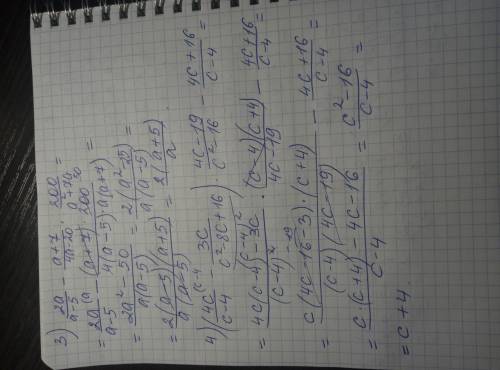 3) 2a/(a-5) - (a+7)/(4a-20) · 200/(a²+7a) =
= 2a/(a-5) - (a+7)/(4(a-5)) · 200/(a(a+7)) =
= (2a²-50)/(a(a-5)) = 2(a²-25)/(a(a-5)) =
= 2(a-5)(a+5)/(a(a-5)) = 2(a+5)/a .
4) (4c/(c-4) - 3c/(c²-8c+16)) : (4c-19)/(c²-16) - (4c+16)/(c-4) =
= (4c(c-4)-3c)/(c-4)² · (c-4)(c+4)/(4c-19) - (4c+16)/(c-4) =
= c(4c-16-3)·(c+4)/((c-4)(4c-19)) - (4c+16)/(c-4) =
= (c·(c+4)-4c-16)/(c-4) = (c²-16)/(c-4) =
= c+4.